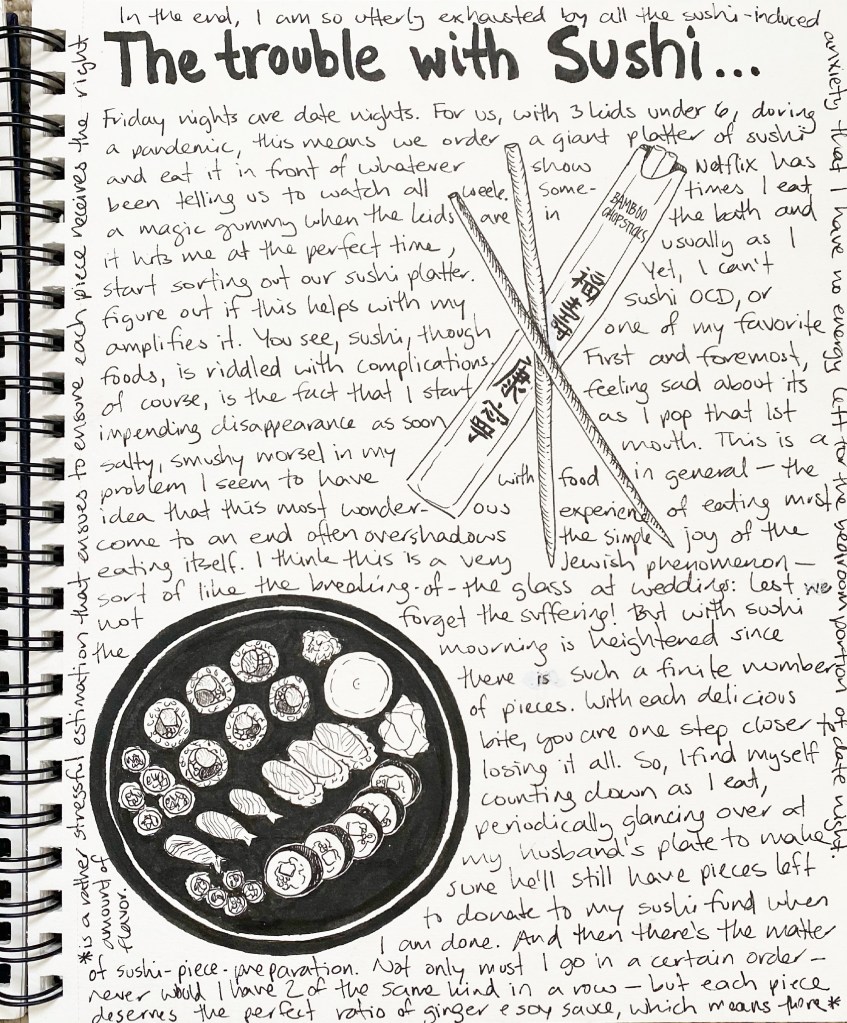 The trouble with Sushi...
Friday nights are date nights. For us, with 3 kids under 6, during
a pandemic, this means we order a giant platter of sushi
and eat it in front of whatever show Netflix has
been telling us to watch all week. Some- times I eat
a magic gummy when the kids are in the bath and
it hits me at the perfect time, usually as I
start sorting out our sushi platter. Yet, I can't
figure out if this helps with my sushi OCD, or
amplifies it. You see, sushi, though one of my favorite
foods, is riddled with complications. First and foremost,
of course, is the fact that I start feeling sad about its
impending disappearance as soon as I pop that 1st
salty, smushy morsel in my mouth. This is a
problem I seem to have with food in general — the
idea that this most wonder- ous experience of eating must
come to an end often overshadows the simple joy of the
eating itself. I think this is a very Jewish phenomenon —
sort of like the breaking-of-the glass at weddings: Lest we
not forget the suffering! But with sushi
the mourning is heightened since
there is such a finite number
of pieces. With each delicious
bite, you are one step closer to
losing it all. So, I find myself
counting down as I eat,
periodically glancing over at
my husband's plate to make
sure he'll still have pieces left
to donate to my sushi fund when
I am done. And then there's the matter
of sushi-piece-preparation. Not only must I go in a certain order —
never would I have 2 of the same kind in a row — but each piece
deserves the perfect ratio of ginger & soy sauce, which means there*
*is a rather stressful estimation that ensues to ensure each piece receives the right
amount of
flavor.
In the end, I am so utterly exhausted by all the sushi-induced
anxiety that I have no energy left for the bedroom portion of date night.
BAMBOO
CHOPSTICKS
福壽
康寧